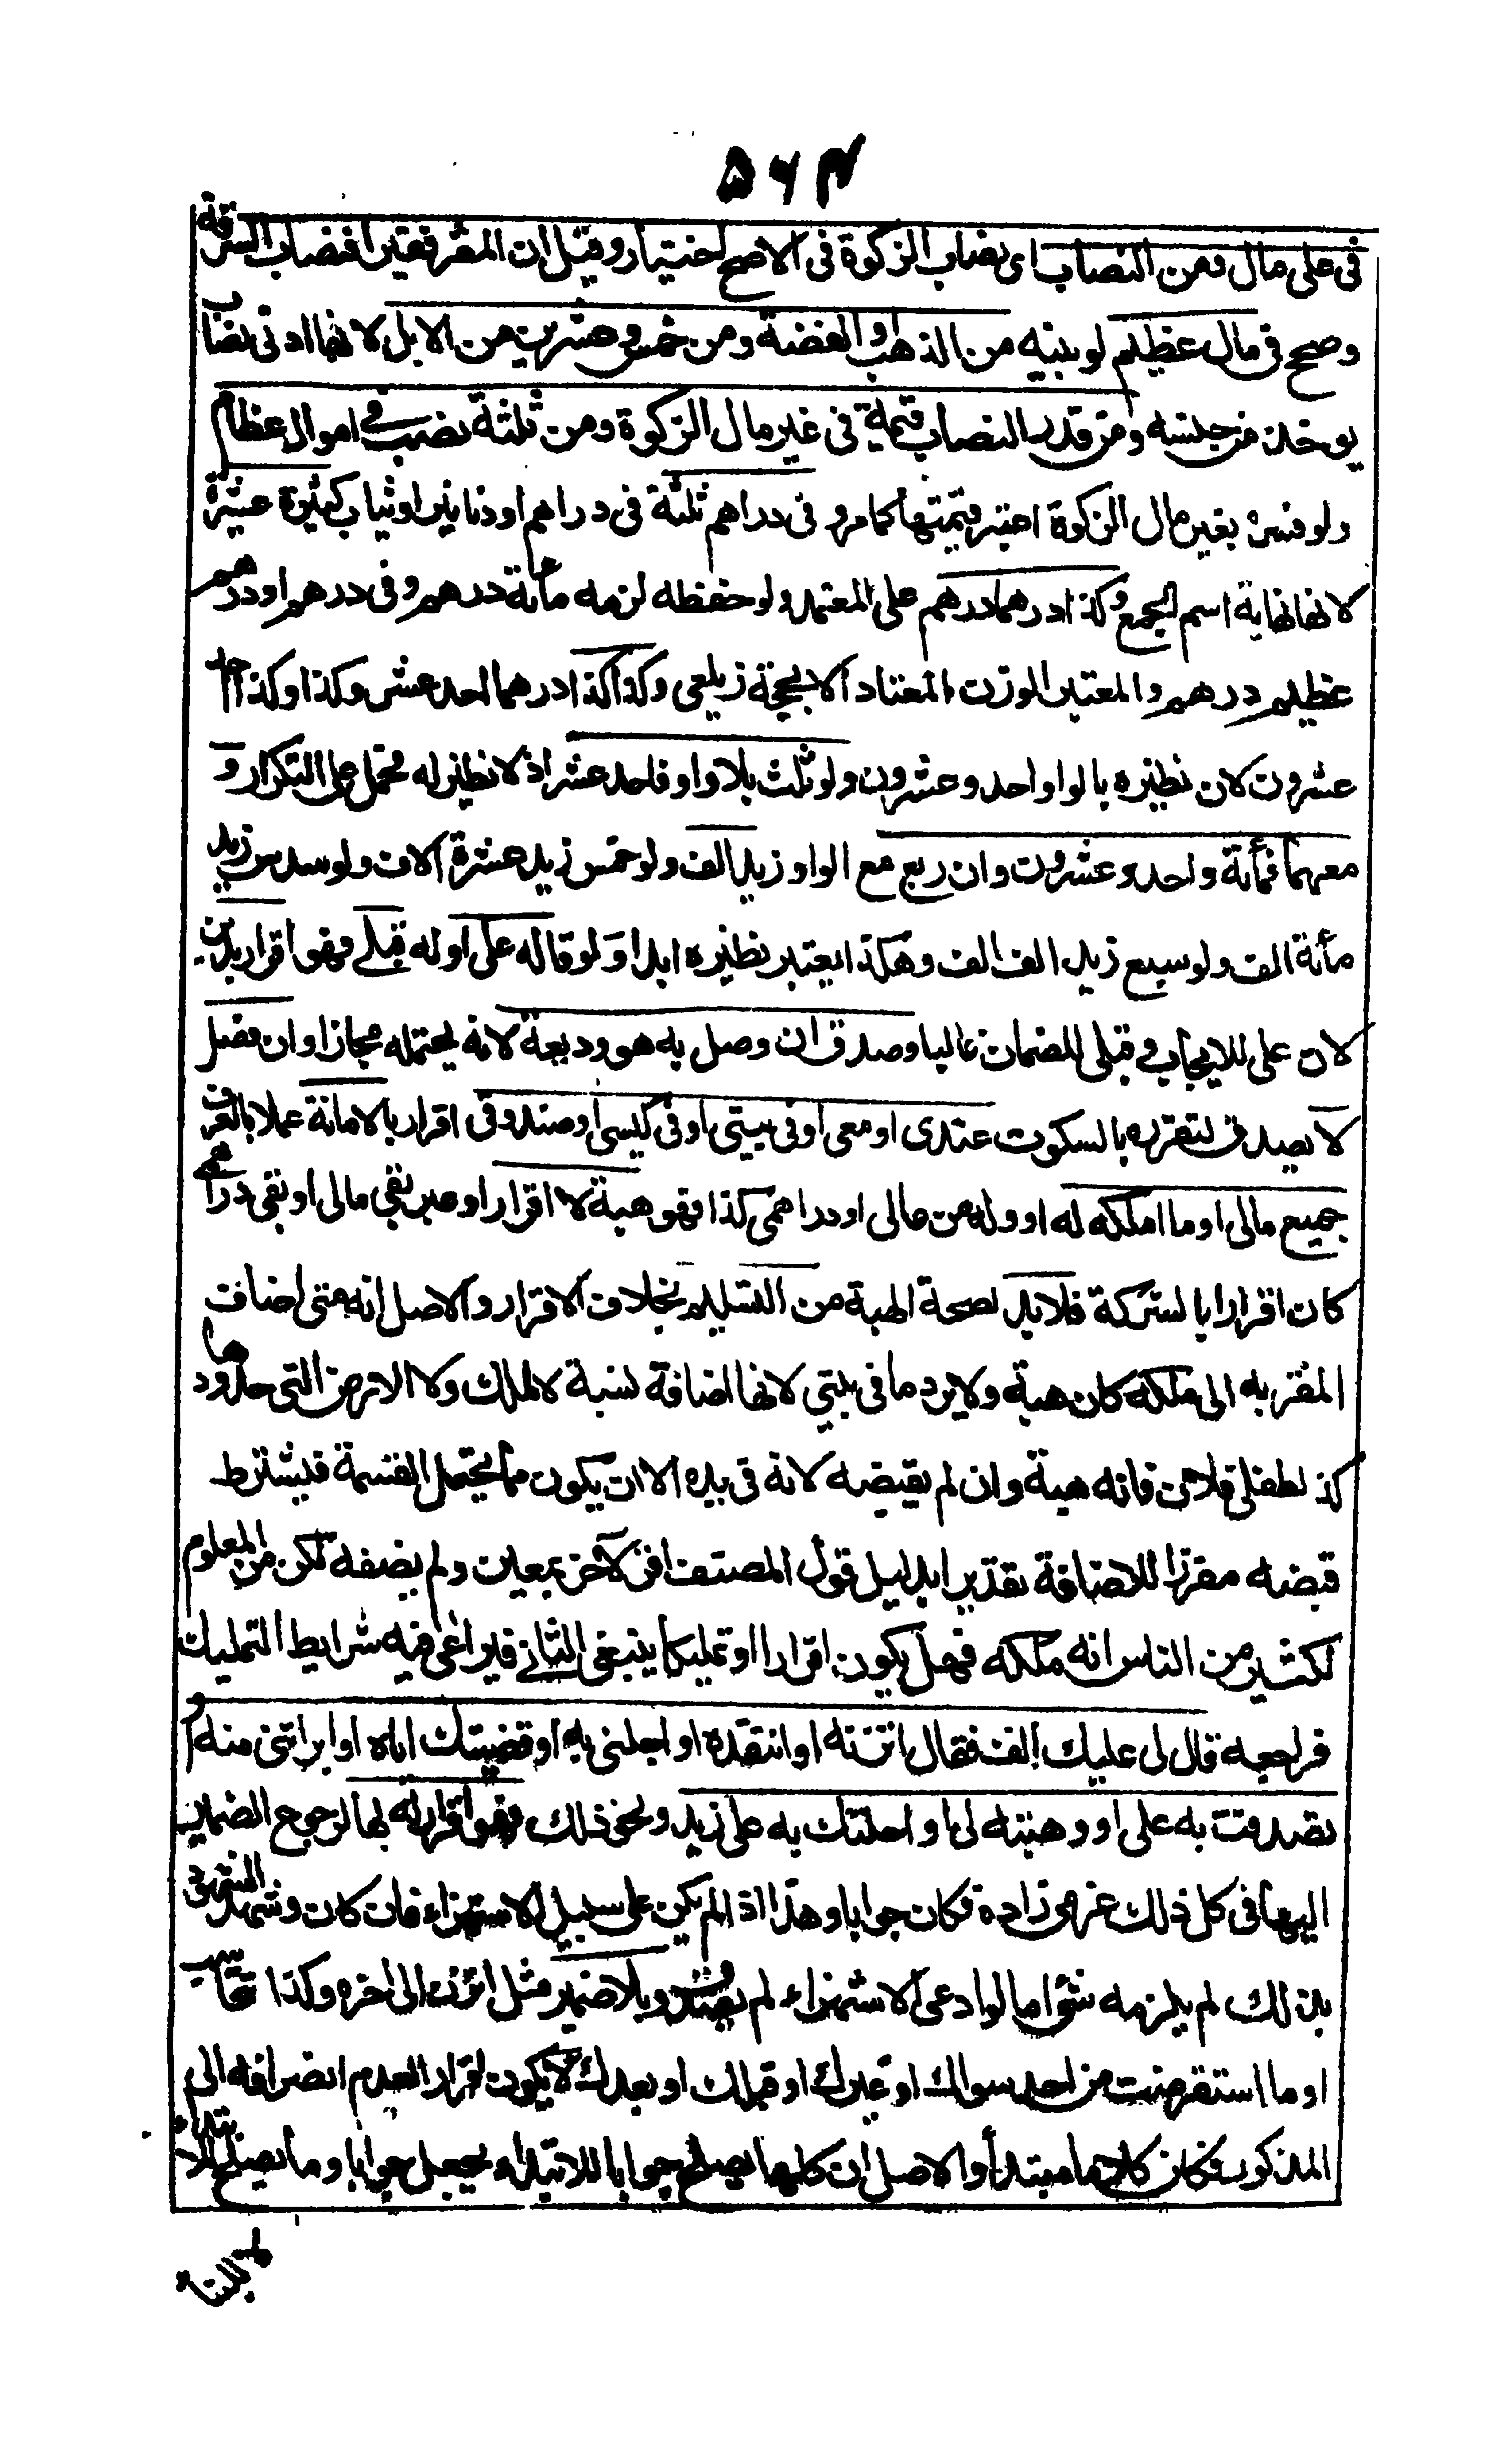 ۵۶۴
فى على مال ومن النصاب اى نصاب الزكوة فى الاصح اختيار وقيل ان المقر فقيرا فنصاب السرقة
وصح فى مال عظيم لو بينه من الذهب او الفضة ومن خمس وعشرين من الابل لانها ادنى نصاب
يوخذ من جنسه ومن قدر النصاب قيمة فى غير مال الزكوة ومن ثلثة نصب فى اموال عظام
ولو فسره بغير مال الزكوة اعتبر قيمتها كما مر و فى دراهم ثلثة فى دراهم او دنانير او ثياب كثيرة عشرة
لانها نهاية اسم الجمع وكذا درهما درهم على المعتمد ولو خفضه لزمه مائة درهم وفى درهم او درهم
عظيم درهم والمعتبر الوزن المعتاد الا بحجة زيلعى وكذا كذا درهما احد عشر وكذا وكذا احد
عشرون لان نظيره بالواو احد وعشرون ولو ثلث بلا واو فاحد عشر اذ لا نظير له فحمل على التكرار و
معهما فمائة واحد وعشرون وان ربع مع الواو زيد الف ولو خمس زيد عشرة الاف ولو سدس زيد
مائة الف ولو سبع زيد الف الف وهكذا يعتبر نظيره ابدا ولو قال له على او له قبلى فهو اقرار بدين
لان على للايجاب و قبلى للضمان غالبا وصدق ان وصل به هو وديعة لانه يحتمله مجازا وان فصل
لا يصدق لتقرره بالسكوت عندى او معى او فى بيتى او فى كيسى او صندوقى اقرار بالامانة عملا بالعرف
جميع مالى او ما املكه له او وله من مالى او دراهمى كذا فهو هبة لا اقرار او عبر بفى مالى او بفى دراهمى
كان اقرارا بالشركة فلا بد لصحة الهبة من التسليم بخلاف الاقرار والاصل انه متى اضاف
المقر به الى ملكه كان هبة ولا يرد ما فى بيتى لانها اضافة نسبة لا ملك ولا الارض التى حدودها
كذا لطفلى فلان فانه هبة وان لم يقبضه لانه فى يده الا ان يكون مما يحتمل القسمة فيشترط
قبضه مفرزا للاضافة تقديرا بدليل قول المصنف اقر لآخر بمعين ولم يضفه لكن من المعلوم
لكثير من الناس انه ملكه فهل يكون اقرارا او تمليكا ينبغى الثانى فيراعى فيه شرايط التمليك
فراجعه قال لى عليك الف فقال اتزنه او انتقده او اجلنى به او قضيتك اياه او ابراتنى منه او
تصدقت به على او وهبته لى او احلتك به على زيد ونحو ذلك فهو اقرار له بها لرجوع الضمير
اليها فى كل ذلك عزمى زاده فكان جوابا وهذا اذا لم يكن على سبيل الاستهزاء فان كان وشهد الشهود
بذلك لم يلزمه شئ اما لو ادعى الاستهزاء لم يصدق وبلا ضمير مثل اتزن الى اخره وكذا نتحاسب
او ما استقرضت من احد سواك او غيرك او قبلك او بعدك لا يكون اقرار العدم انصرافه الى
المذكور فكان كلاما مبتدأ والاصل ان كلما يصلح جوابا لا ابتداء يجعل جوابا وما يصلح للابتداء